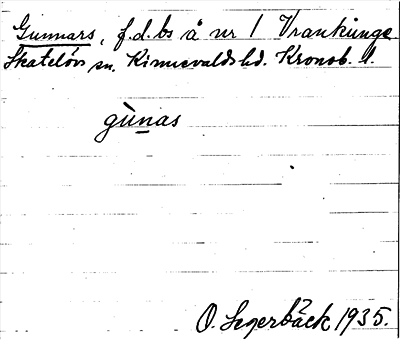 Gunnars, f.d. bs å nr 1 Vrankunge
Skatelövs sn. Kinnevalds hd. Kronob. l.
gùnas
O. Segerbäck 1935.